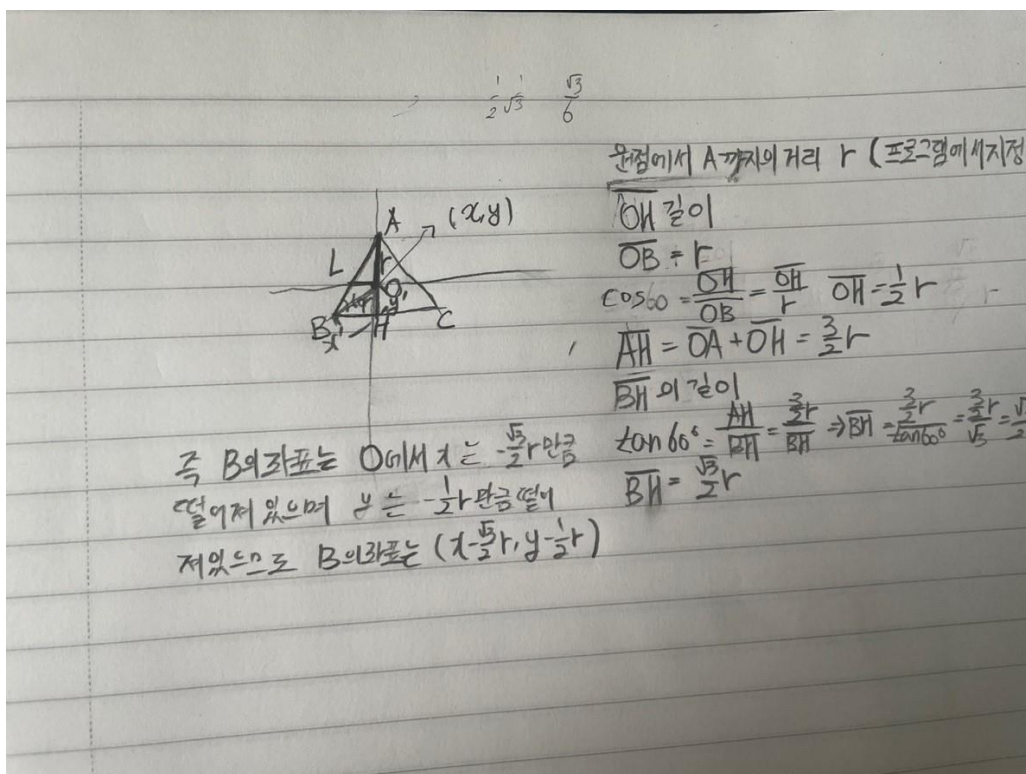 1/2 1/√3 √3/6
원점에서 A까지의 거리 r (프로그램에서지정
OH 길이
OB = r
cos60 = OH/OB = OH/r OH = 1/2 r
AH = OA + OH = 3/2 r
BH의 길이
tan60° = AH/BH = 3/2r/BH ⇒ BH = 3/2r/tan60° = 3/2r/√3 = √
BH = √3/2 r
A (x,y)
L r
O
B H C
x
즉 B의 좌표는 O에서 x는 -√3/2 r 만큼
떨어져 있으며 y는 -1/2 r 만큼 떨어
져있으므로 B의좌표는 (x-√3/2 r, y-1/2 r)